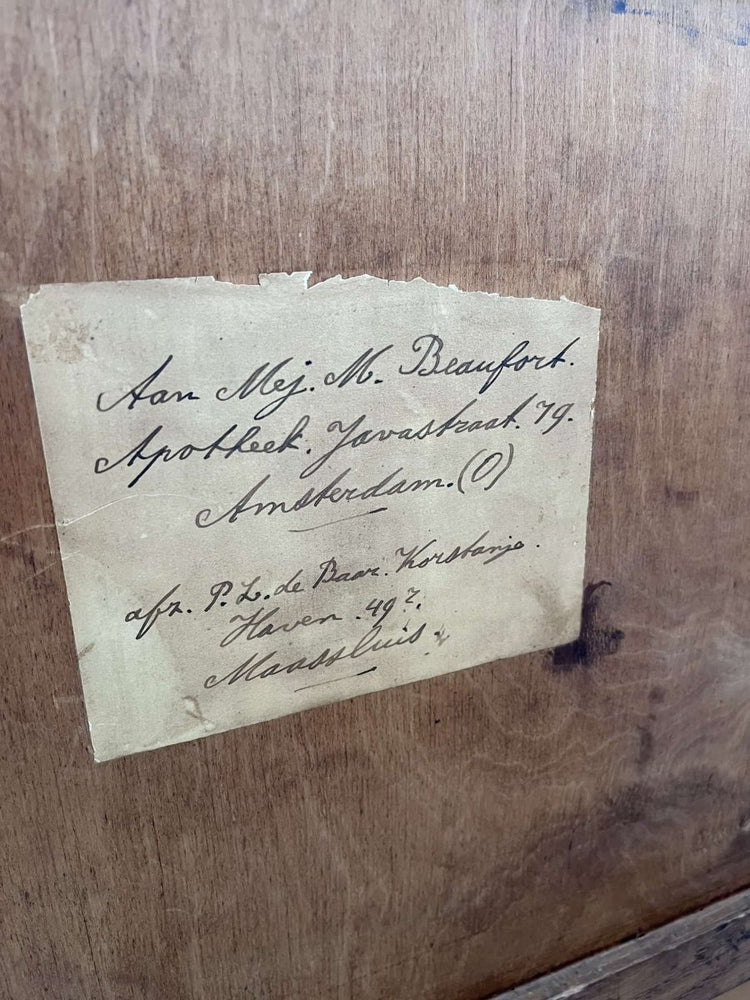 Aan Mej. M. Beaufort.
Apotheek. Javastraat. 79.
Amsterdam. (O)
afz. P. L. de Baar. Korstanje.
Haven. 49?.
Maassluis.